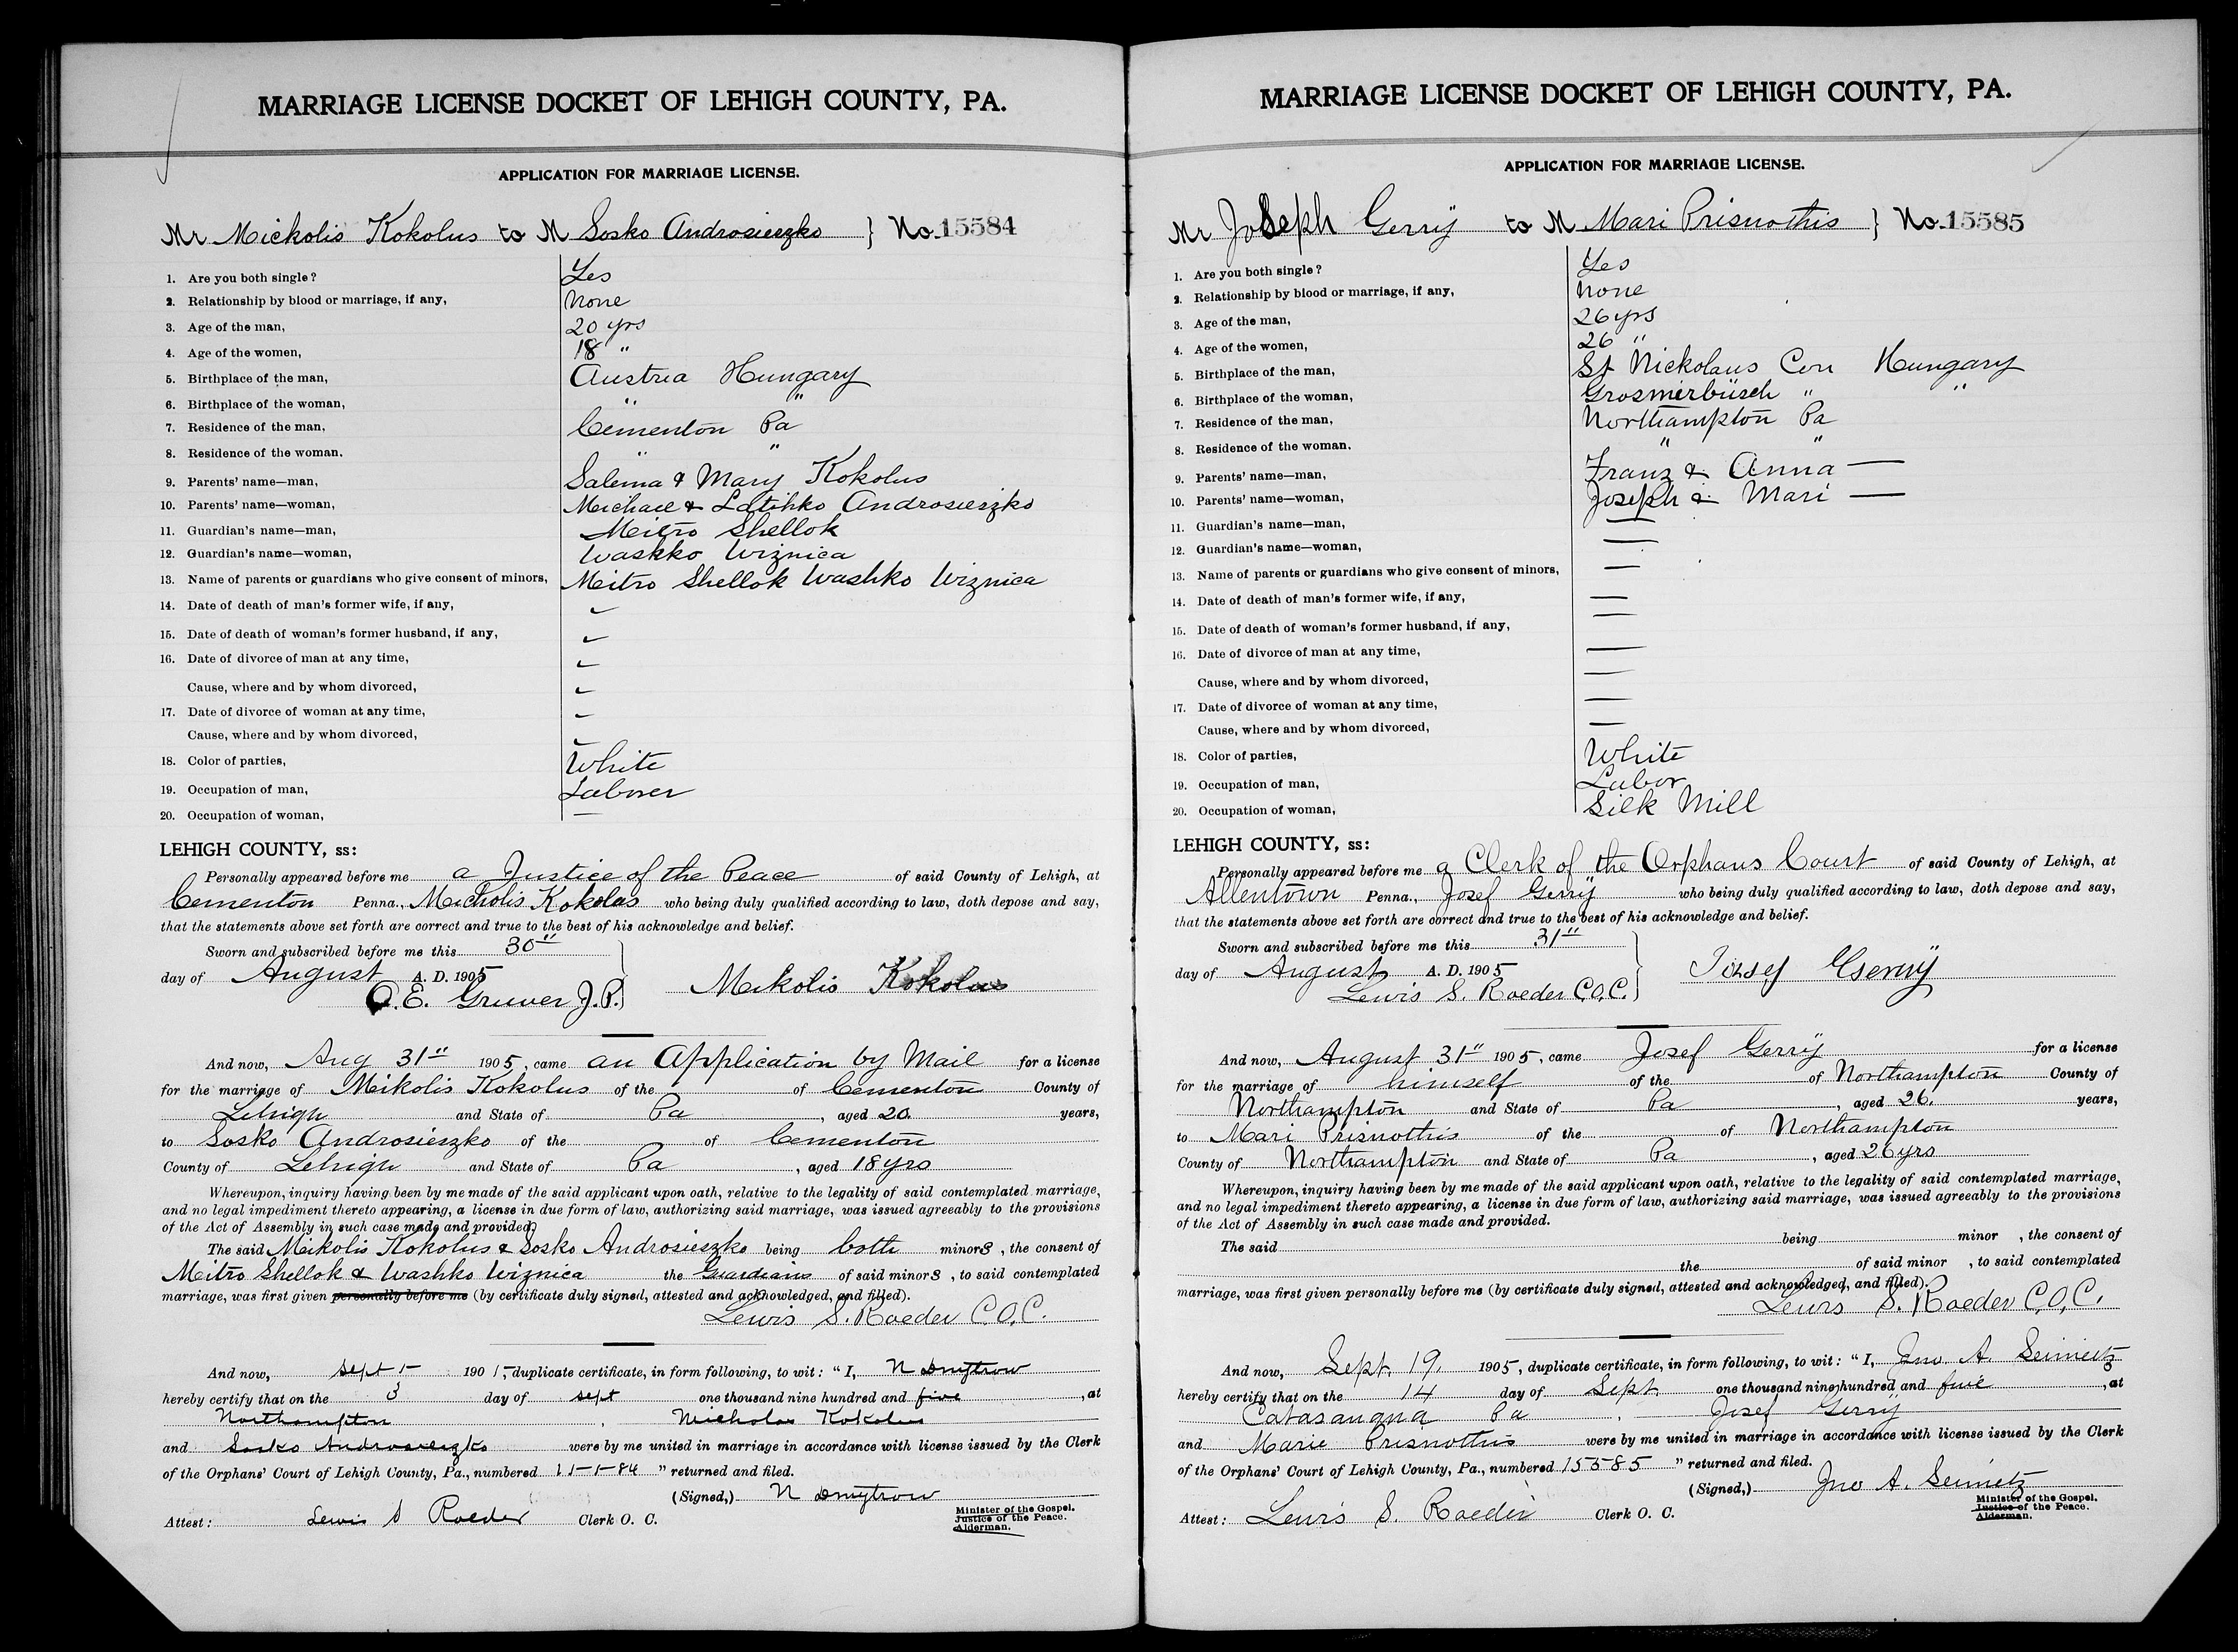 MARRIAGE LICENSE DOCKET OF LEHIGH COUNTY, PA.
APPLICATION FOR MARRIAGE LICENSE.
Mr Mickolis Kokolus to M Sosko Androsieszko } No. 15584
1. Are you both single? Yes
2. Relationship by blood or marriage, if any, None
3. Age of the man, 20 yrs
4. Age of the women, 18 "
5. Birthplace of the man, Austria Hungary
6. Birthplace of the woman, " "
7. Residence of the man, Cementon Pa
8. Residence of the woman. " "
9. Parents' name—man, Salema & Mary Kokolus
10. Parents' name—woman, Michael & Androsieszko
11. Guardian's name—man, Meitro Shellok
12. Guardian's name—woman, Waskko Wiznica
13. Name of parents or guardians who give consent of minors, Meitro Shellok Washko Wiznica
14. Date of death of man's former wife, if any,
15. Date of death of woman's former husband, if any,
16. Date of divorce of man at any time,
Cause, where and by whom divorced,
17. Date of divorce of woman at any time,
Cause, where and by whom divorced,
18. Color of parties, White
19. Occupation of man, Laborer
20. Occupation of woman, —
LEHIGH COUNTY, ss:
Personally appeared before me a Justice of the Peace of said County of Lehigh, at
Cementon Penna., Mickolis Kokolus who being duly qualified according to law, doth depose and say,
that the statements above set forth are correct and true to the best of his acknowledge and belief.
Sworn and subscribed before me this 30"
day of August A. D. 1905
O. E. Gruver J. P. Mekolis Kokolus
And now, Aug 31" 1905, came an Application by Mail for a license
for the marriage of Meikolis Kokolus of the of Cementon County of
Lehigh and State of Pa, aged 20 years,
to Sosko Androsieszko of the of Cementon
County of Lehigh and State of Pa, aged 18 yrs
Whereupon, inquiry having been by me made of the said applicant upon oath, relative to the legality of said contemplated marriage,
and no legal impediment thereto appearing, a license in due form of law, authorizing said marriage, was issued agreeably to the provisions
of the Act of Assembly in such case made and provided.
The said Meikolis Kokolus & Sosko Androsieszko being both minors, the consent of
Meitro Shellok & Washko Wiznica the Guardians of said minors, to said contemplated
marriage, was first given personally before me (by certificate duly signed, attested and acknowledged, and filled).
Lewis S. Roeder C.O.C.
And now, Sept 5 1905, duplicate certificate, in form following, to wit: "I, N Dmytrow
hereby certify that on the 3 day of Sept one thousand nine hundred and five, at
Northampton, Nicholas Kokolus
and Sosko Androsieszko were by me united in marriage in accordance with license issued by the Clerk
of the Orphans' Court of Lehigh County, Pa., numbered 15584 " returned and filed.
(Signed,) N Dmytrow
Minister of the Gospel.
Justice of the Peace.
Alderman.
Attest: Lewis S Roeder Clerk O. C.
MARRIAGE LICENSE DOCKET OF LEHIGH COUNTY, PA.
APPLICATION FOR MARRIAGE LICENSE.
Mr Joseph Gerrÿ to M Mari Prisnothis } No. 15585
1. Are you both single? Yes
2. Relationship by blood or marriage, if any, None
3. Age of the man, 26 yrs
4. Age of the women, 26 "
5. Birthplace of the man, St Nickolaus Con Hungary
6. Birthplace of the woman, Grosmerbüsch " "
7. Residence of the man, Northampton Pa
8. Residence of the woman. " "
9. Parents' name—man, Franz & Anna —
10. Parents' name—woman, Joseph & Mari —
11. Guardian's name—man, —
12. Guardian's name—woman, —
13. Name of parents or guardians who give consent of minors, —
14. Date of death of man's former wife, if any, —
15. Date of death of woman's former husband, if any, —
16. Date of divorce of man at any time, —
Cause, where and by whom divorced, —
17. Date of divorce of woman at any time, —
Cause, where and by whom divorced, —
18. Color of parties, White
19. Occupation of man, Labor
20. Occupation of woman, Silk Mill
LEHIGH COUNTY, ss:
Personally appeared before me a Clerk of the Orphans Court of said County of Lehigh, at
Allentown Penna., Josef Gerrÿ who being duly qualified according to law, doth depose and say,
that the statements above set forth are correct and true to the best of his acknowledge and belief.
Sworn and subscribed before me this 31"
day of August A. D. 1905
Lewis S. Roeder C.O.C.
And now, August 31" 1905, came Josef Gerrÿ for a license
for the marriage of himself of the of Northampton County of
Northampton and State of Pa, aged 26. years,
to Mari Prisnothis of the of Northampton
County of Northampton and State of Pa, aged 26 yrs
Whereupon, inquiry having been by me made of the said applicant upon oath, relative to the legality of said contemplated marriage,
and no legal impediment thereto appearing, a license in due form of law, authorizing said marriage, was issued agreeably to the provisions
of the Act of Assembly in such case made and provided.
The said being minor, the consent of
the of said minor, to said contemplated
marriage, was first given personally before me (by certificate duly signed, attested and acknowledged, and filled).
Lewis S. Roeder C.O.C.
And now, Sept. 19, 1905, duplicate certificate, in form following, to wit: "I, Jno. A. Seimetz
hereby certify that on the 14 day of Sept. one thousand nine hundred and five, at
Catasauqua Pa, Josef Gerrÿ
and Marie Prisnothis were by me united in marriage in accordance with license issued by the Clerk
of the Orphans' Court of Lehigh County, Pa., numbered 15585 " returned and filed.
(Signed,) Jno A. Seimetz
Minister of the Gospel.
Justice of the Peace.
Alderman.
Attest: Lewis S. Roeder Clerk O. C.